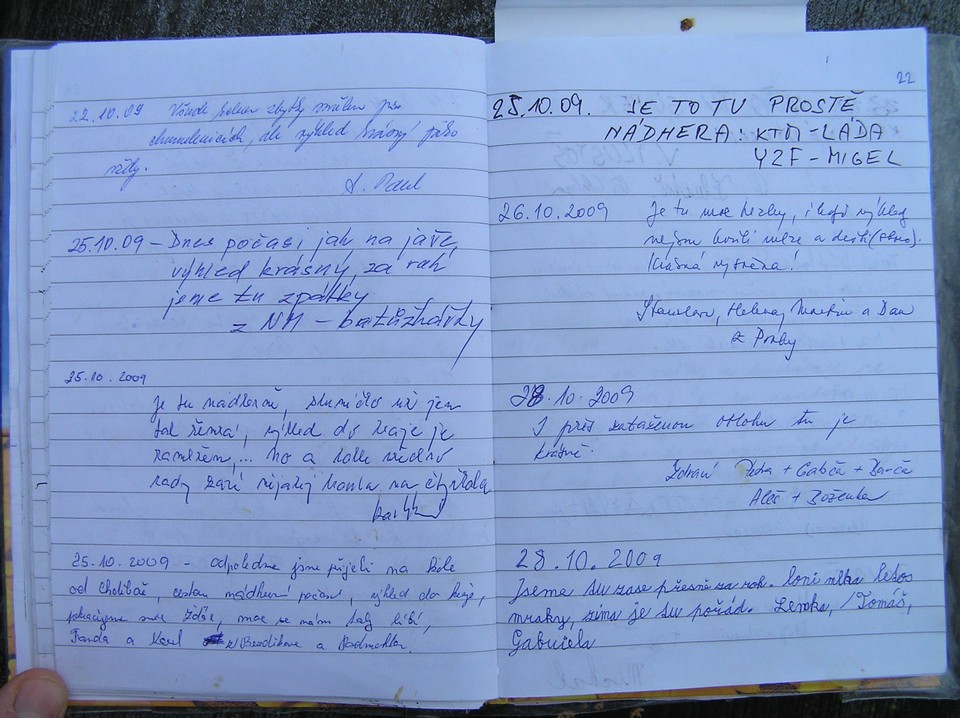 22.10.09 Všude kolem zbytky sněhu po
chumelenicích, ale výhled krásný jako
vždy.
25.10.09 – Dnes počasí jak na jaře,
výhled krásný, za rok
jsme tu zpátky
z NM – batůžkářky
25.10.2009
Je tu nádherně, sluníčko už jen
tak výhled do kraje je
no a
rady září na
25.10.2009 – odpoledne jsme přijeli na kole
od Chotěboř, cestou nádherné počasí, výhled do kraje,
pokračujeme směr Ždár, moc se nám tady líbí,
Fanda a Karel z a
22
25.10.09. JE TO TU PROSTĚ
NÁDHERA: KTM-LÁDA
YZF-MIGEL
26.10.2009 Je tu moc hezky, i když výhled
nejsou kvůli mlze a dešti
Krásná vyhlídka!
Stanislav, Helena, Martin a Dan
z Prahy
28.10.2009
I přes zataženou oblohu tu je
krásně.
Zdraví Petra + Gabča + Barča
Aleš + Boženka
28.10.2009
Jsme tu zase přesně za rok. Loni mlha letos
mraky, zima je tu pořád. Lenka, Tomáš,
Gabučela